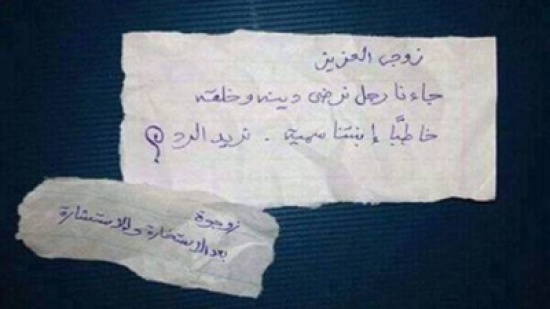 زوجى العزيز
جاءنا رجل نرضى دينه وخلقه
خاطبًا إبنتنا سمية . نريد الرد ؟
زوجوة
بعد الاستخارة والاستشارة